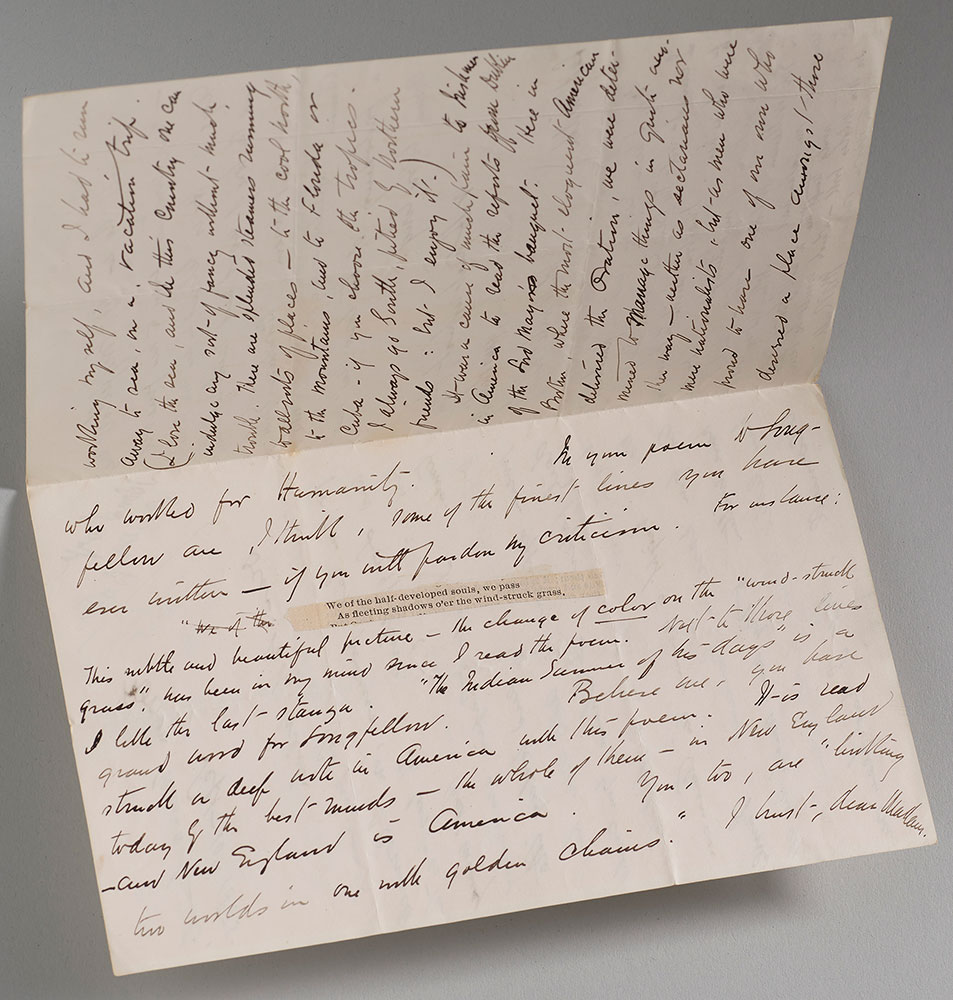 working myself, and I had to run
away to sea, on a vacation trip.
(I love the sea, and in this Country one can
indulge any sort of fancy without much
trouble. There are splendid steamers running
to all sorts of places — to the cool north,
to the mountains, and to Florida or
Cuba — if you choose the tropics.
I always go South, pitied by Northern
friends: but I enjoy it.)
It was a cause of much pain to Irishmen
in America to read the reports
of the Lord Mayor's banquet. Here in
Boston, where the most eloquent American
delivered the Oration, we were deter-
mined to manage things in quite ano-
ther way — neither as sectarians nor
mere nationalists, but as men who were
proud to have one of our own who
deserved a place amongst those
who worked for Humanity. In your poem to Long-
fellow are, I think, some of the finest lines you have
ever written — if you will pardon my criticism. For instance:
"We of the
We of the half-developed souls, we pass
As fleeting shadows o'er the wind-struck grass,
This subtle and beautiful picture — the change of color on the "wind-struck
grass", has been in my mind since I read the poem. Next to these lines
I like the last stanza. "The Indian Summer of his days" is a
grand word for Longfellow. Believe me, you have
struck a deep note in America with this poem. It is read
today by the best minds — the whole of them — in New England
— and New England is America. You, too, are "linking
two worlds in one with golden chains." I trust, dear Madam,